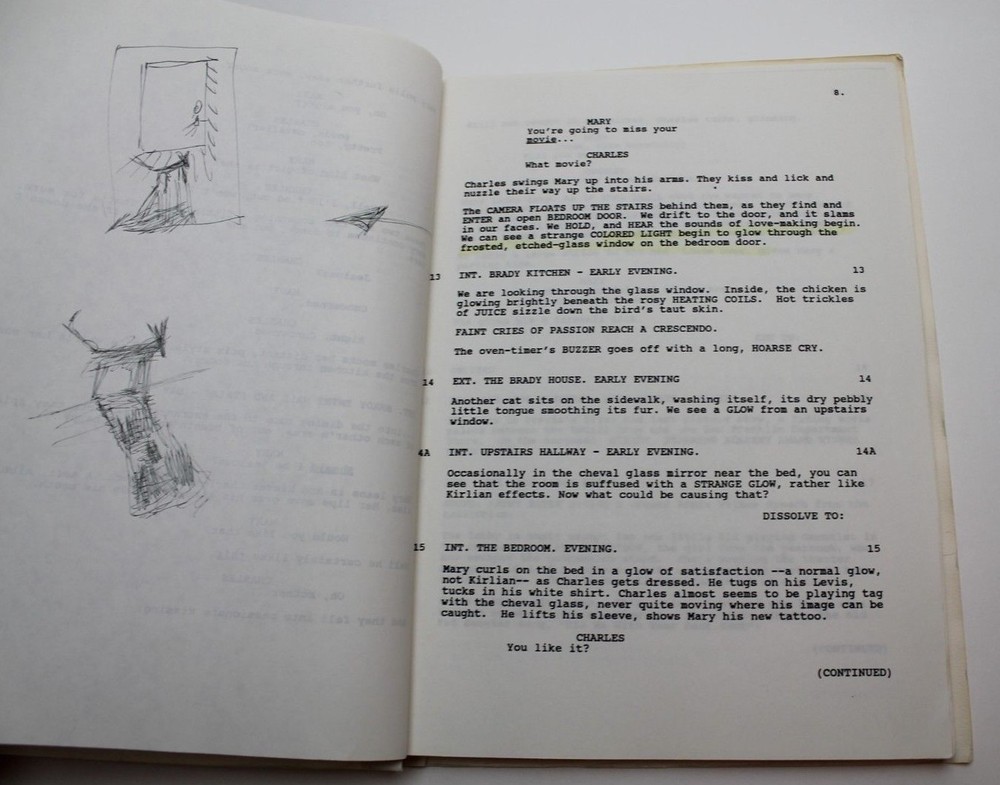 8.
MARY
You're going to miss your
movie...
CHARLES
What movie?
Charles swings Mary up into his arms. They kiss and lick and
nuzzle their way up the stairs.
The CAMERA FLOATS UP THE STAIRS behind them, as they find and
ENTER an open BEDROOM DOOR. We drift to the door, and it slams
in our faces. We HOLD, and HEAR the sounds of love-making begin.
We can see a strange COLORED LIGHT begin to glow through the
frosted, etched-glass window on the bedroom door.
13 INT. BRADY KITCHEN - EARLY EVENING. 13
We are looking through the glass window. Inside, the chicken is
glowing brightly beneath the rosy HEATING COILS. Hot trickles
of JUICE sizzle down the bird's taut skin.
FAINT CRIES OF PASSION REACH A CRESCENDO.
The oven-timer's BUZZER goes off with a long, HOARSE CRY.
14 EXT. THE BRADY HOUSE. EARLY EVENING 14
Another cat sits on the sidewalk, washing itself, its dry pebbly
little tongue smoothing its fur. We see a GLOW from an upstairs
window.
4A INT. UPSTAIRS HALLWAY - EARLY EVENING. 14A
Occasionally in the cheval glass mirror near the bed, you can
see that the room is suffused with a STRANGE GLOW, rather like
Kirlian effects. Now what could be causing that?
DISSOLVE TO:
15 INT. THE BEDROOM. EVENING. 15
Mary curls on the bed in a glow of satisfaction --a normal glow,
not Kirlian-- as Charles gets dressed. He tugs on his Levis,
tucks in his white shirt. Charles almost seems to be playing tag
with the cheval glass, never quite moving where his image can be
caught. He lifts his sleeve, shows Mary his new tattoo.
CHARLES
You like it?
(CONTINUED)